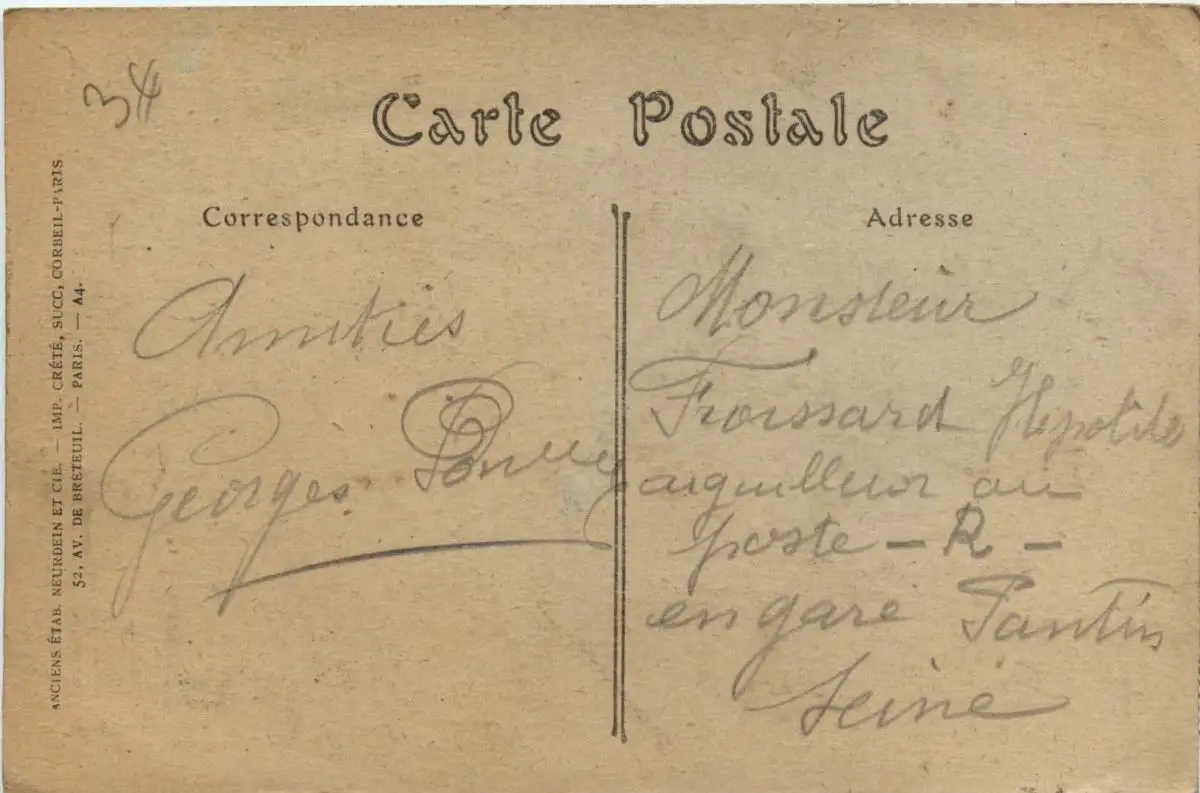 34
Carte Postale
Correspondance
Adresse
Amitiés
Georges
Monsieur
Froissard Hypolite
aiguilleur au
poste - R -
en gare Pantin
Seine
ANCIENS ÉTAB. NEURDEIN ET CIE. — IMP. CRÉTÉ, SUCC, CORBEIL-PARIS
52, AV. DE BRETEUIL. — PARIS. — A4.